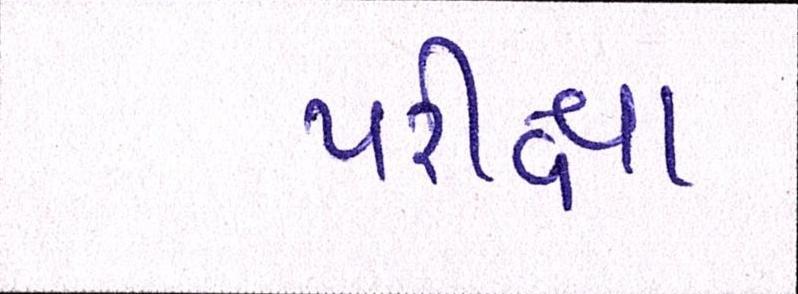 પરીક્ષા